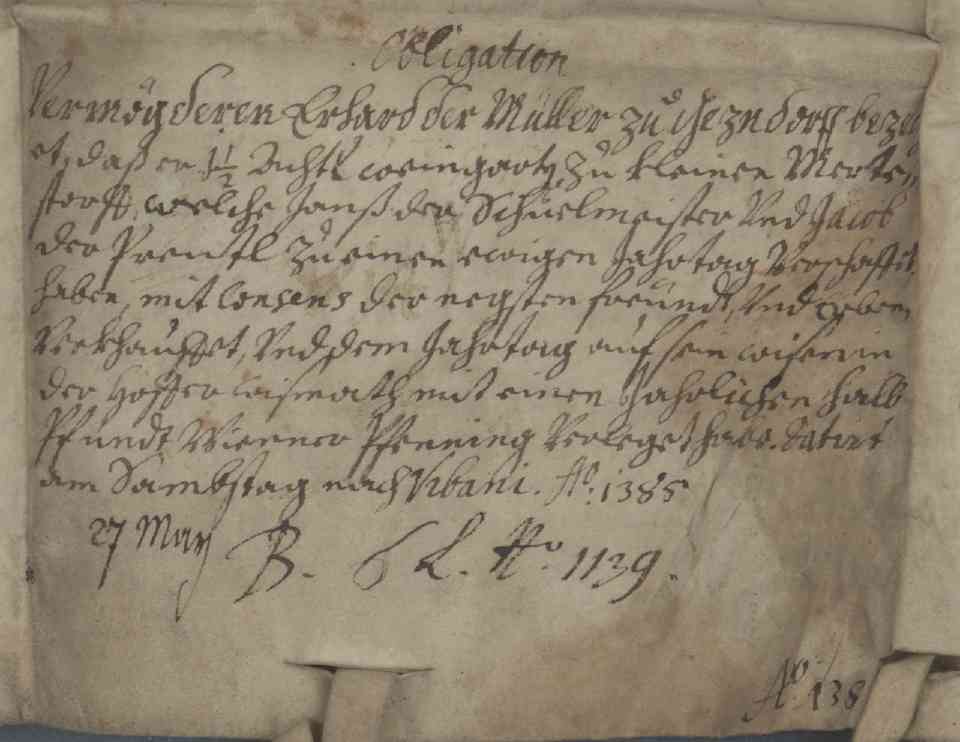 Obligation
Vermög deren Erhard der Müller zu Jezndorff bezeug
et, daß er 1½ Achtl weingartt, zu kleinen Merte,,
storff, welche Janß der Schuelmeister Und Jacob
der Preustl zu einen ewigen Jahrtag Verschafft
haben, mit Consens der negsten freundt, Und erben,
Verkhauffet, Und dem Jahrtag auf sein wisen in
der Hoffer wismath mit einen Jahrlichen halb
Pfundt Wienner Pfenning Verleget habe. Datirt
am Sambstag nach Urbani. Aō: 1385
27 May B. 6 L. Nō. 1139.
Aō. 138